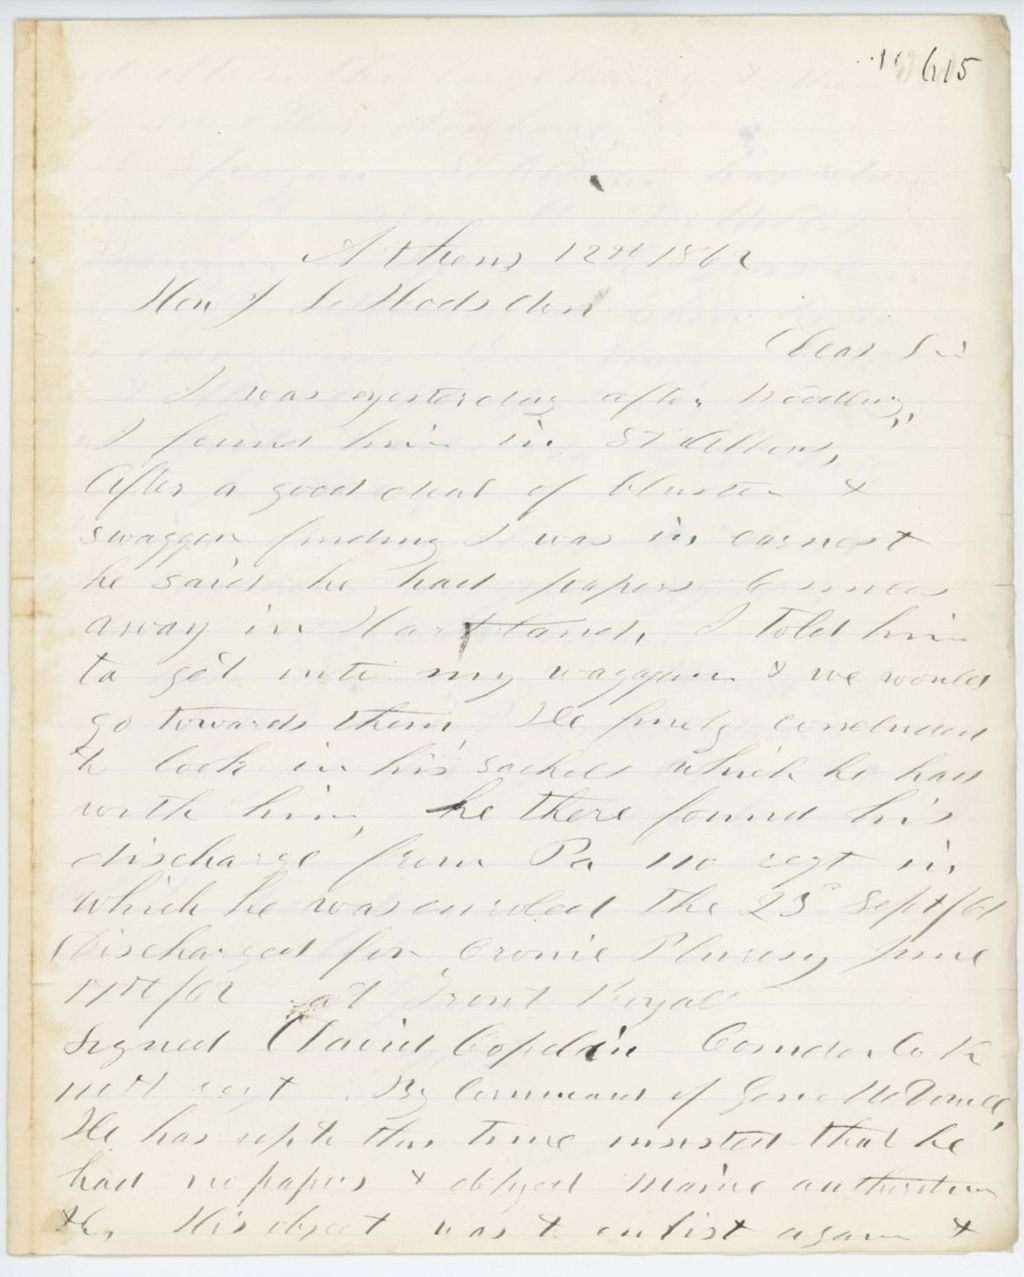 615
Athens 12th 1862
Hon J L Hodsdon
Dear Sir
I was yesterday after
I found him in St Albans,
After a good deal of bluster &
swagger finding I was in earnest
he said he had papers 6 miles
away in Hartland, I told him
to get into my waggon & we would
go towards them He finely concluded
to look in his sachel which he had
with him, he there found his
discharge from Pa 110 regt in
which he was enroled the 23d Sept/61
Discharged for Cronic Plurisy June
17th/62 at Front Royal
Signed David Copelin Comder Co K
110th regt . By Command of Gen McDowell,
He has up to this time insisted that he
had no papers & defyed Maine
&c, His object was to enlist again &